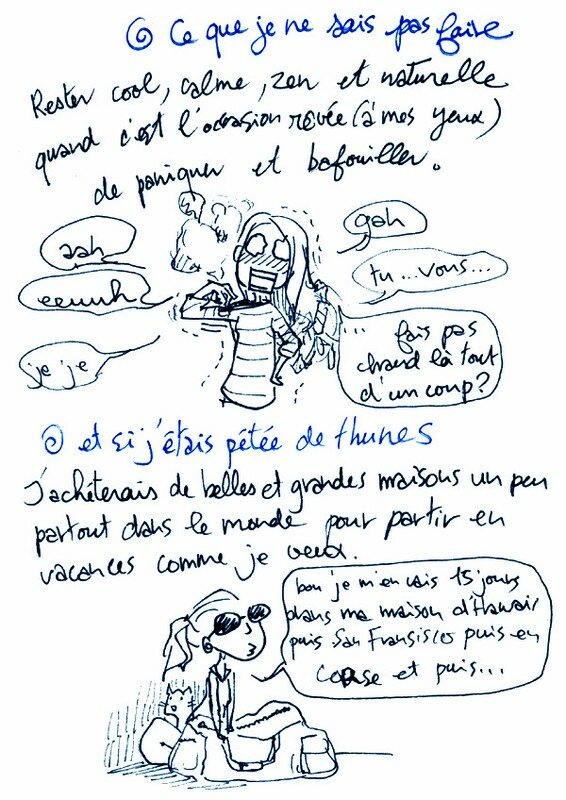 Ce que je ne sais pas faire
Rester cool, calme, zen et naturelle
quand c'est l'occasion rêvée (à mes yeux)
de paniquer et bafouiller.
aah
gah
eeuuh
tu...vous...
je je
fais pas
chaud là tout
d'un coup?
et si j'étais pétée de thunes
J'achèterais de belles et grandes maisons un peu
partout dans le monde pour partir en
vacances comme je veux.
bon je m'en vais 15 jours
dans ma maison d'Hawaï
puis San Fransisco puis en
Corse et puis...